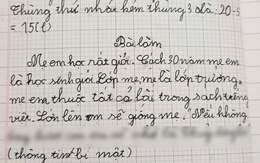 Thùng thứ nhất kém thùng 3 là: 20-5
= 15(l)
Bài làm
Mẹ em học rất giỏi. Cách 30 năm mẹ em
là học sinh giỏi. Lớp mẹ, mẹ là lớp trưởng,
mẹ em thuộc tất cả bài trong sách tiếng
việt. Lớn lên em sẽ giống mẹ, "Nếu không
(thông tin bí mật)